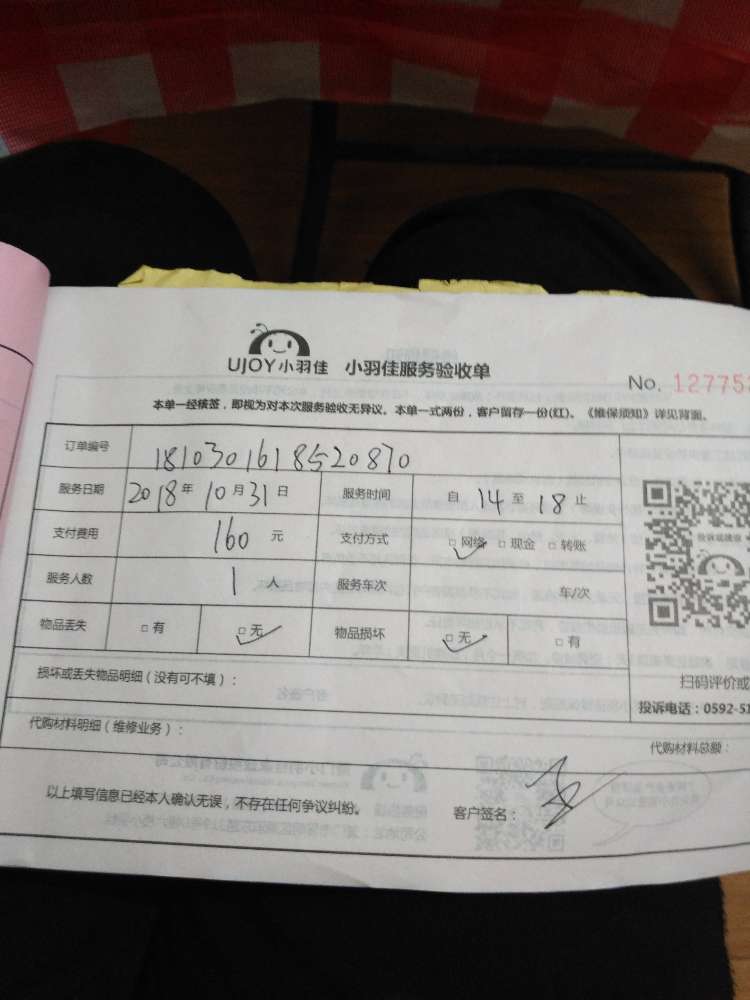 UJOY小羽佳 小羽佳服务验收单
No. 127753
本单一经核签，即视为对本次服务验收无异议。本单一式两份，客户留存一份(红)。《维保须知》详见背面。
订单编号 1810301618520870
服务日期 2018年10月31日 服务时间 自14至18止
支付费用 160元 支付方式 □网络 □现金 □转账
服务人数 1人 服务车次 车/次
物品丢失 □有 □无 物品损坏 □无 □有
损坏或丢失物品明细（没有可不填）：
扫码评价或
投诉电话：0592-51
代购材料明细（维修业务）：
代购材料总额：
以上填写信息已经本人确认无误，不存在任何争议纠纷。 客户签名：